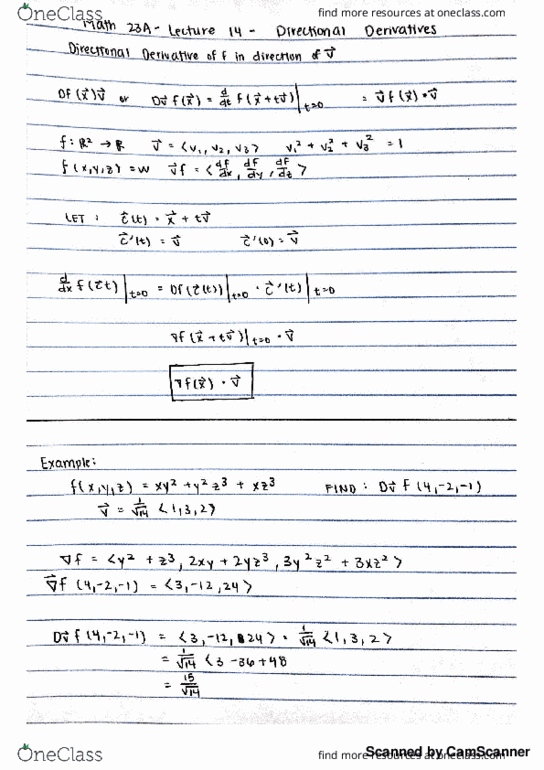 OneClass find more resources at oneclass.com
Math 23A - Lecture 14 - Directional Derivatives
Directional Derivative of f in direction of v⃗
Df(x⃗)v⃗ or Dv⃗ f(x⃗) = d/dt f(x⃗ + tv⃗)|t=0 = ∇⃗f(x⃗) • v⃗
f: ℝ² → ℝ v⃗ = <v₁, v₂, v₃> v₁² + v₂² + v₃² = 1
f(x,y,z) = w ∇⃗f = <df/dx, df/dy, df/dz>
LET : c⃗(t) = x⃗ + tv⃗
c⃗'(t) = v⃗ c⃗'(0) = v⃗
d/dx f(c⃗t)|t=0 = Df(c⃗(t))|t=0 • c⃗'(t)|t=0
∇f(x⃗ + tv⃗)|t=0 • v⃗
∇f(x⃗) • v⃗
Example:
f(x,y,z) = xy² + y²z³ + xz³ FIND : Dv⃗ f(4,-2,-1)
v⃗ = 1/√14 <1,3,2>
∇f = <y² + z³, 2xy + 2yz³, 3y²z² + 3xz²>
∇⃗f (4,-2,-1) = <3,-12,24>
Dv⃗ f(4,-2,-1) = <3,-12, 24> • 1/√14 <1,3,2>
= 1/√14 <3 -36 +48
= 15/√14
OneClass find more resources at oneclass.com
Scanned by CamScanner